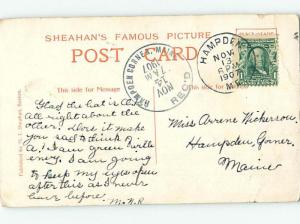 SHEAHAN'S FAMOUS PICTURE
POST CARD
This side for Message
This side for
HAMPDEN CORNER, MAINE
NOV 13
7 AM
1907
REC'D
HAMPDEN
NOV
13
1907
Glad the hat is A. 1.
All right about the
other. Does it make
you sad to think
I am green with
envy. I am going
to keep my eyes open
after this as I never
have before. M.N.R.
Miss Arvene Nickerson,
Hampden Corner,
Maine